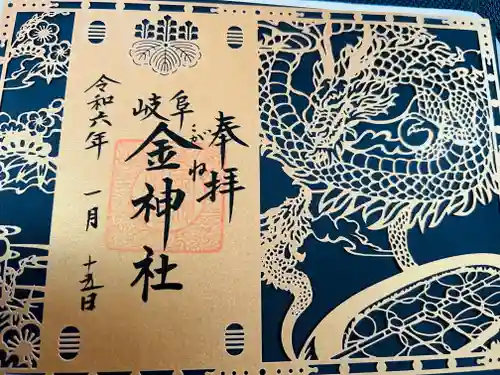 奉拝
岐阜
金神社
こがね
令和六年
一月
十五日